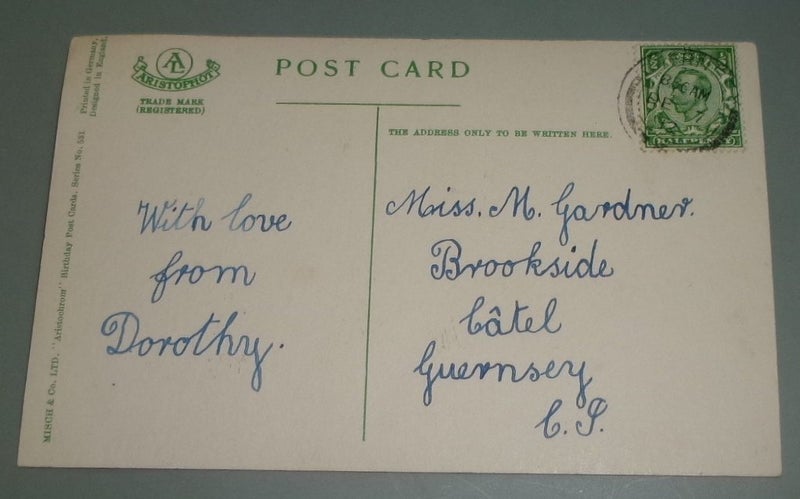 Printed in Germany,
Designed in England.
MISCH & Co. LTD. "Aristochrom" Birthday Post Cards. Series No. 531
AL
ARISTOPHOT
TRADE MARK
(REGISTERED)
POST CARD
THE ADDRESS ONLY TO BE WRITTEN HERE.
With love
from
Dorothy.
Miss. M. Gardner.
Brookside
Câtel
Guernsey
C. I.